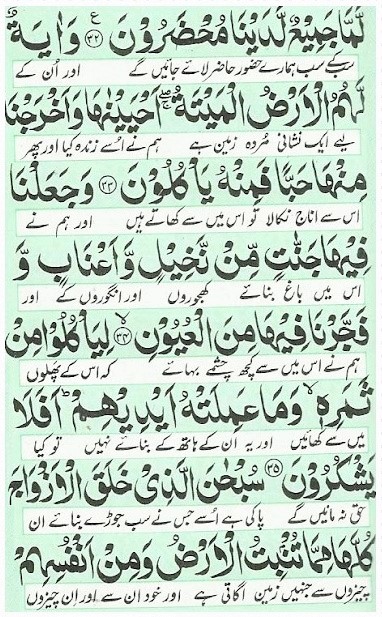 لَّمَّا جَمِيْعٌ لَّدَيْنَا مُحْضَرُوْنَ ﴿۳۲﴾ ع وَاٰيَةٌ
سب کے سب ہمارے حضور حاضر لائے جائیں گے اور اُن کے
لَّهُمُ الْاَرْضُ الْمَيْتَةُ ۖۚ اَحْيَيْنٰهَا وَاَخْرَجْنَا
لیے ایک نشانی مُردہ زمین ہے ہم نے اُسے زندہ کیا اور پھر
مِنْهَا حَبًّا فَمِنْهُ يَاْكُلُوْنَ ﴿۳۳﴾ وَجَعَلْنَا
اس سے اناج نکالا تو اس میں سے کھاتے ہیں اور ہم نے
فِيْهَا جَنّٰتٍ مِّنْ نَّخِيْلٍ وَّاَعْنَابٍ وَّ
اس میں باغ بنائے کھجوروں اور انگوروں کے اور
فَجَّرْنَا فِيْهَا مِنَ الْعُيُوْنِ ﴿۳۴﴾ لا لِيَاْكُلُوْا مِنْ
ہم نے اس میں سے کچھ چشمے بہائے کہ اس کے پھلوں
ثَمَرِهٖ لا وَمَا عَمِلَتْهُ اَيْدِيْهِمْ ؕ اَفَلَا
میں سے کھائیں اور یہ اُن کے ہاتھ کے بنائے نہیں تو کیا
يَشْكُرُوْنَ ﴿۳۵﴾ سُبْحٰنَ الَّذِيْ خَلَقَ الْاَزْوَاجَ
حق نہ مانیں گے پاکی ہے اُسے جس نے سب جوڑے بنائے ان
كُلَّهَا مِمَّا تُنْۢبِتُ الْاَرْضُ وَمِنْ اَنْفُسِهِمْ
چیزوں سے جنہیں زمین اُگاتی ہے اور خود ان سے اور اِن چیزوں